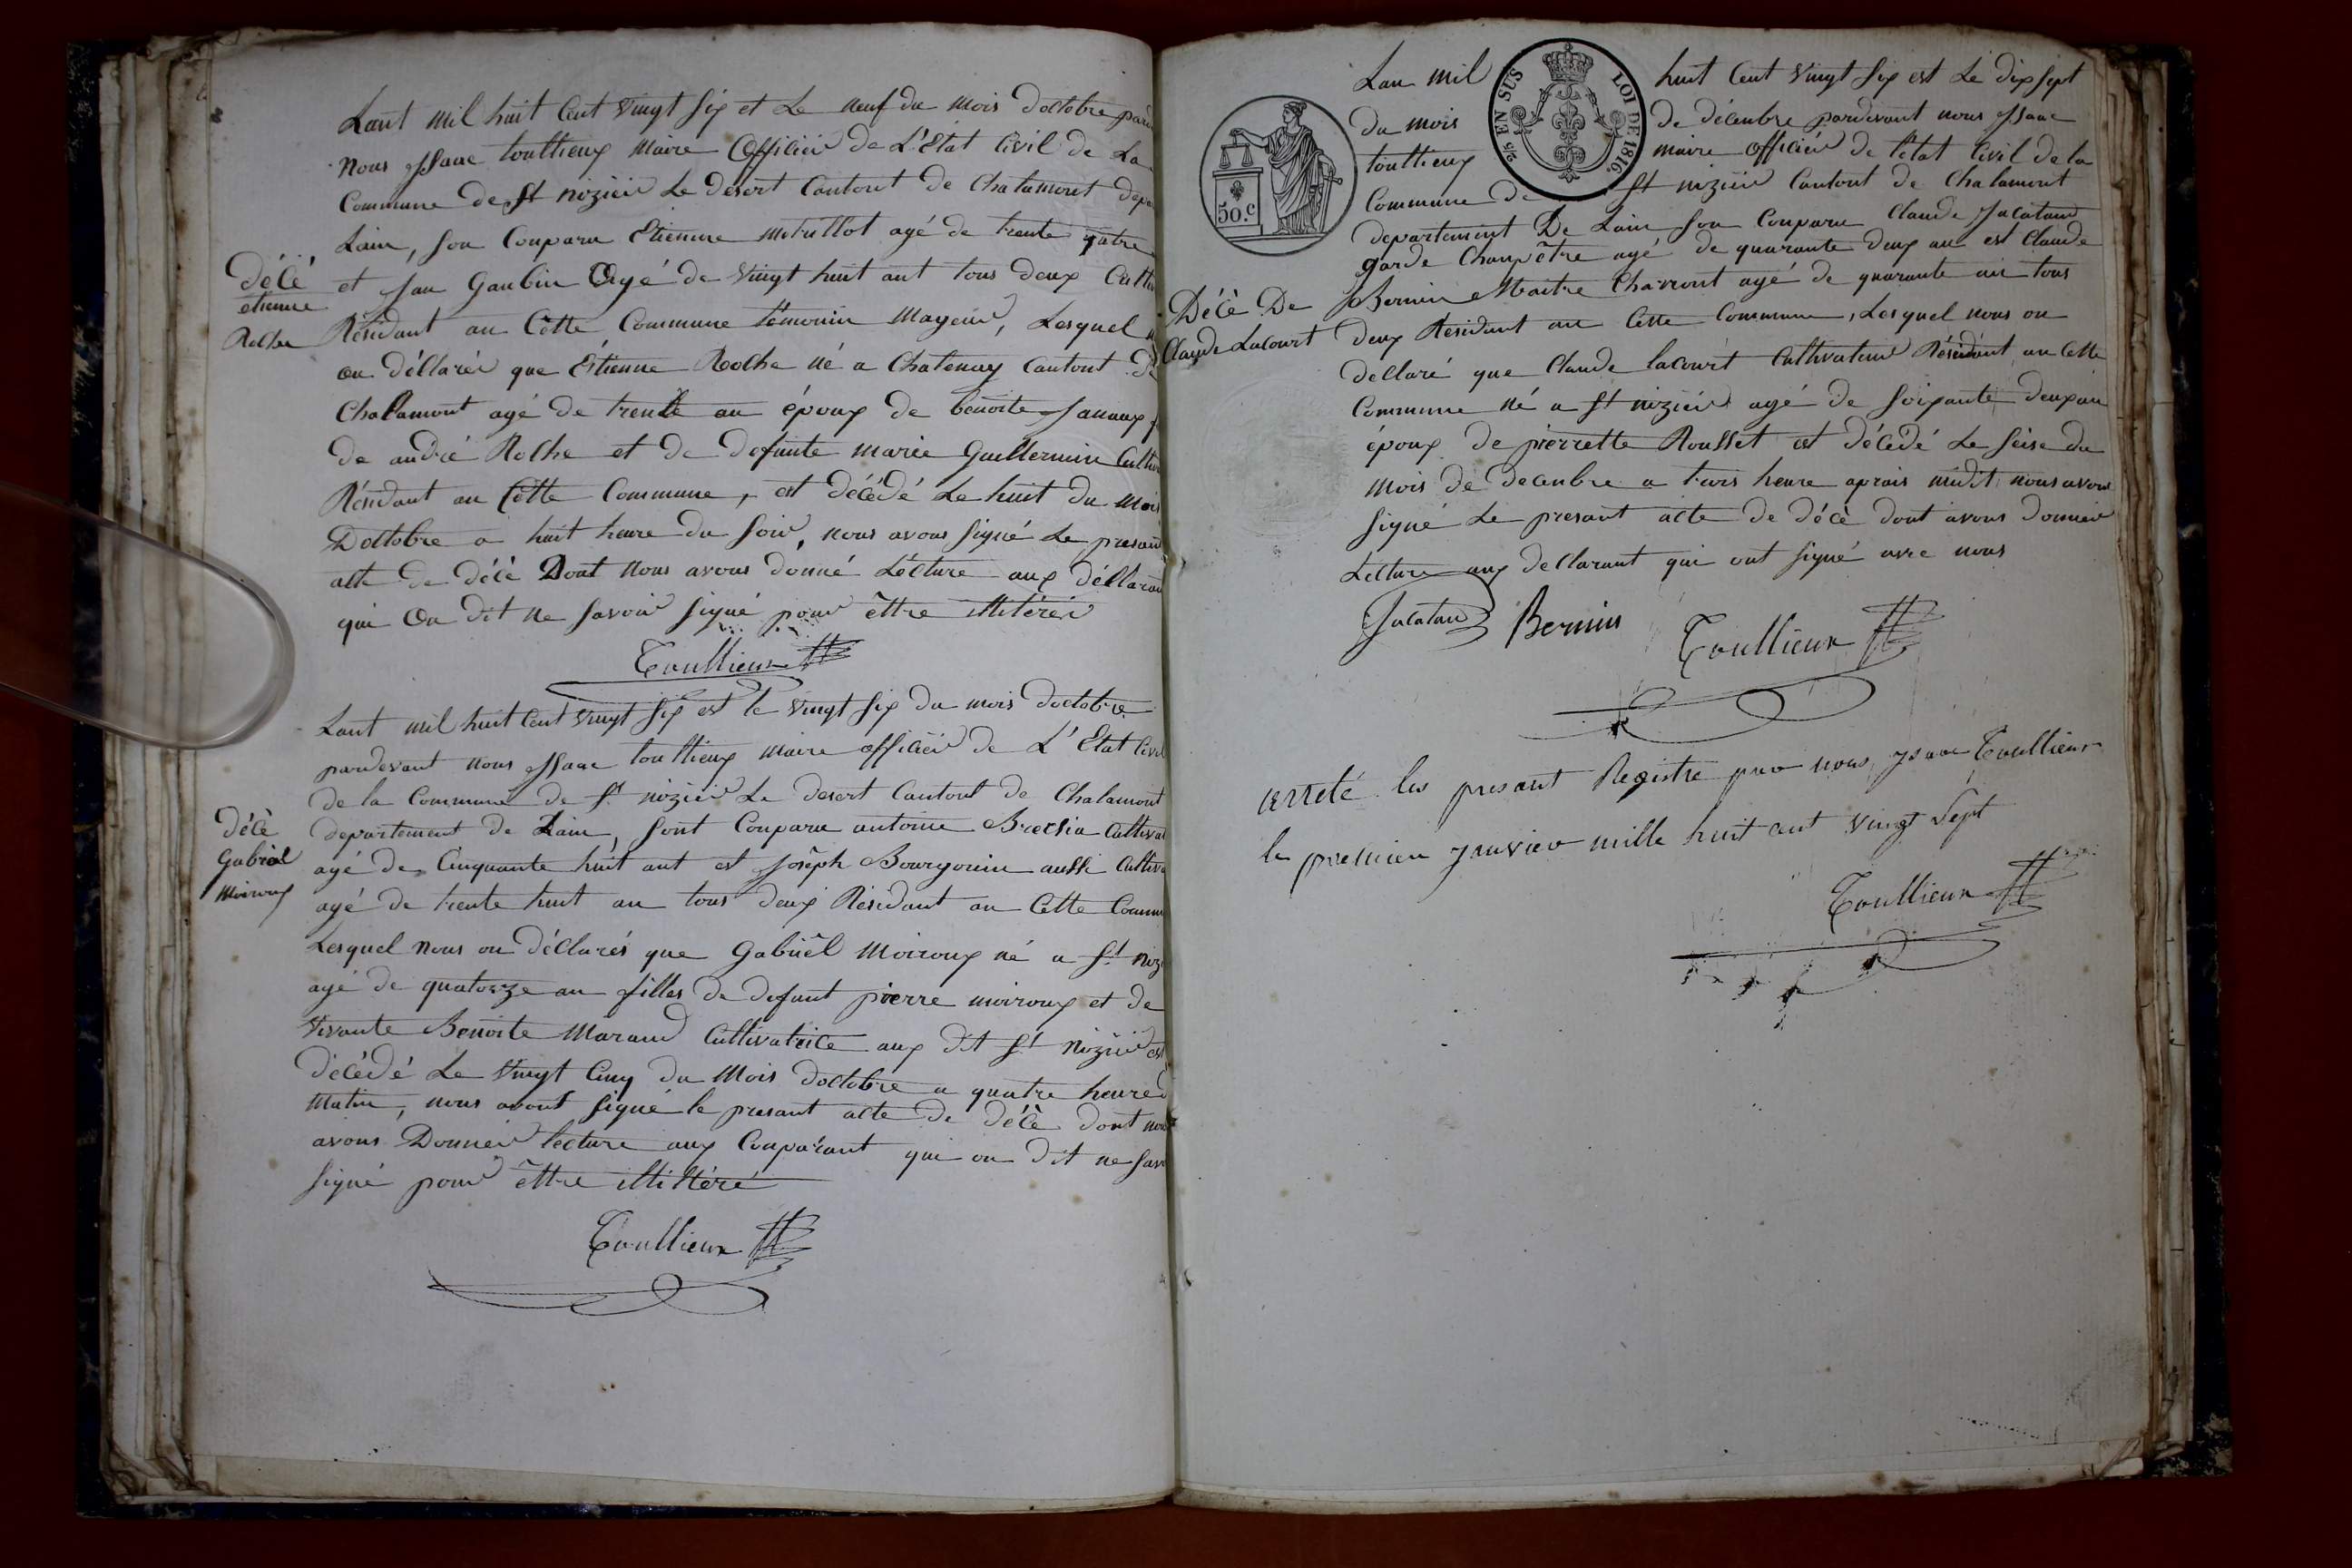 Lant mil huit Cent vingt six et Le neuf du mois doctobre
nous jsaac toullieux maire Officier de L'Etat Civil de La
Commune de St nizier Le desert Cantont de Chalamont
Lain, son Comparu Etienne agé de trente quatre
et jan Gaubin Agé de vingt huit ant tous deux
Décé
etienne
Rolhe
Résidant an Cètte Commune témouin Mageur, Lesquel
on déllarér que Étienne Rolhe né a Chatenay Cantont de
Chalamont agé de trente an époux de benoite Janaux
de andré Rolhe et de defunte marie Guillermin
Résidant an Cètte Commune, est décédé Le huit du mois
Doctobre a huit heure du soir, nous avons signé Le presant
alte de décè Dont nous avons donné Lécture aux déllarant
qui On dit ne savoir signé pour êttre illitérér
Toullieux
Lant mil huit Cent vingt six est le vingt six du mois doctobre
pardevant nous jsaac toullieux maire officier de L'Etat Civil
de la Commune de St nizier Le desert Cantont de Chalamont
departement de Lain, sont Comparu antoine
Décè
Gabriel
Moiroux
agé de Cinquante huit ant est joseph Bourgonin aussi
agé de trente huit an tous deux Résidant an Cètte
Lesquel nous on déllarés que Gabriël Moiroux né a St
agé de quatorze an filles de defunt pierre moiroux et de
vivante Benoite Marand Cultivatrice aux dit St Nizier est
décédé Le vingt Cinq du Mois doctobre a quatre heure
Matin, nous avont signé le presant alte de décè dont
avons Donnér lecture aux Comparant qui on dit ne
signé pour êttre illittéré
Toullieux
50.c
2/5 EN SUS LOI DE 1816.
Lan mil huit Cent vingt six est Le dix sept
du mois de décenbre pardevant nous jsaac
toullieux maire officier de l'etat Civil de la
Commune de St nizier Cantont de Chalamont
departement De Lain son Comparu Claude Jacatand
garde Champètre agé de quarante deux an est Claude
Décè De
Claude Lacourt
Bernin Maitre Charront agé de quarante an tous
deux Résidant an Cette Commune, Lesquel nous on
dellaré que Claude lacourt Cultivateur Résidant an Cette
Commune né a St nizier agé de soixante deux an
époux de pierrette Rousset est décedé Le seise du
mois de decenbre a trois heure aprais midit nous avons
signé Le presant alte de décè dont avons donnér
Lelture aux dellarant qui ont signé avec nous
Jacatand Bernin Toullieux
arreté les presant Registre par nous ysaac Toullieux
le premier janvier mille huit cent vingt Sept
Toullieux